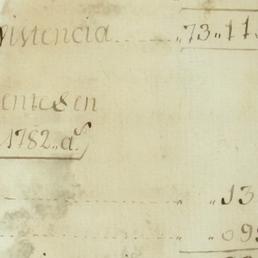 xistencia ........ „73„11
entes en
1782„ as
„13
„09